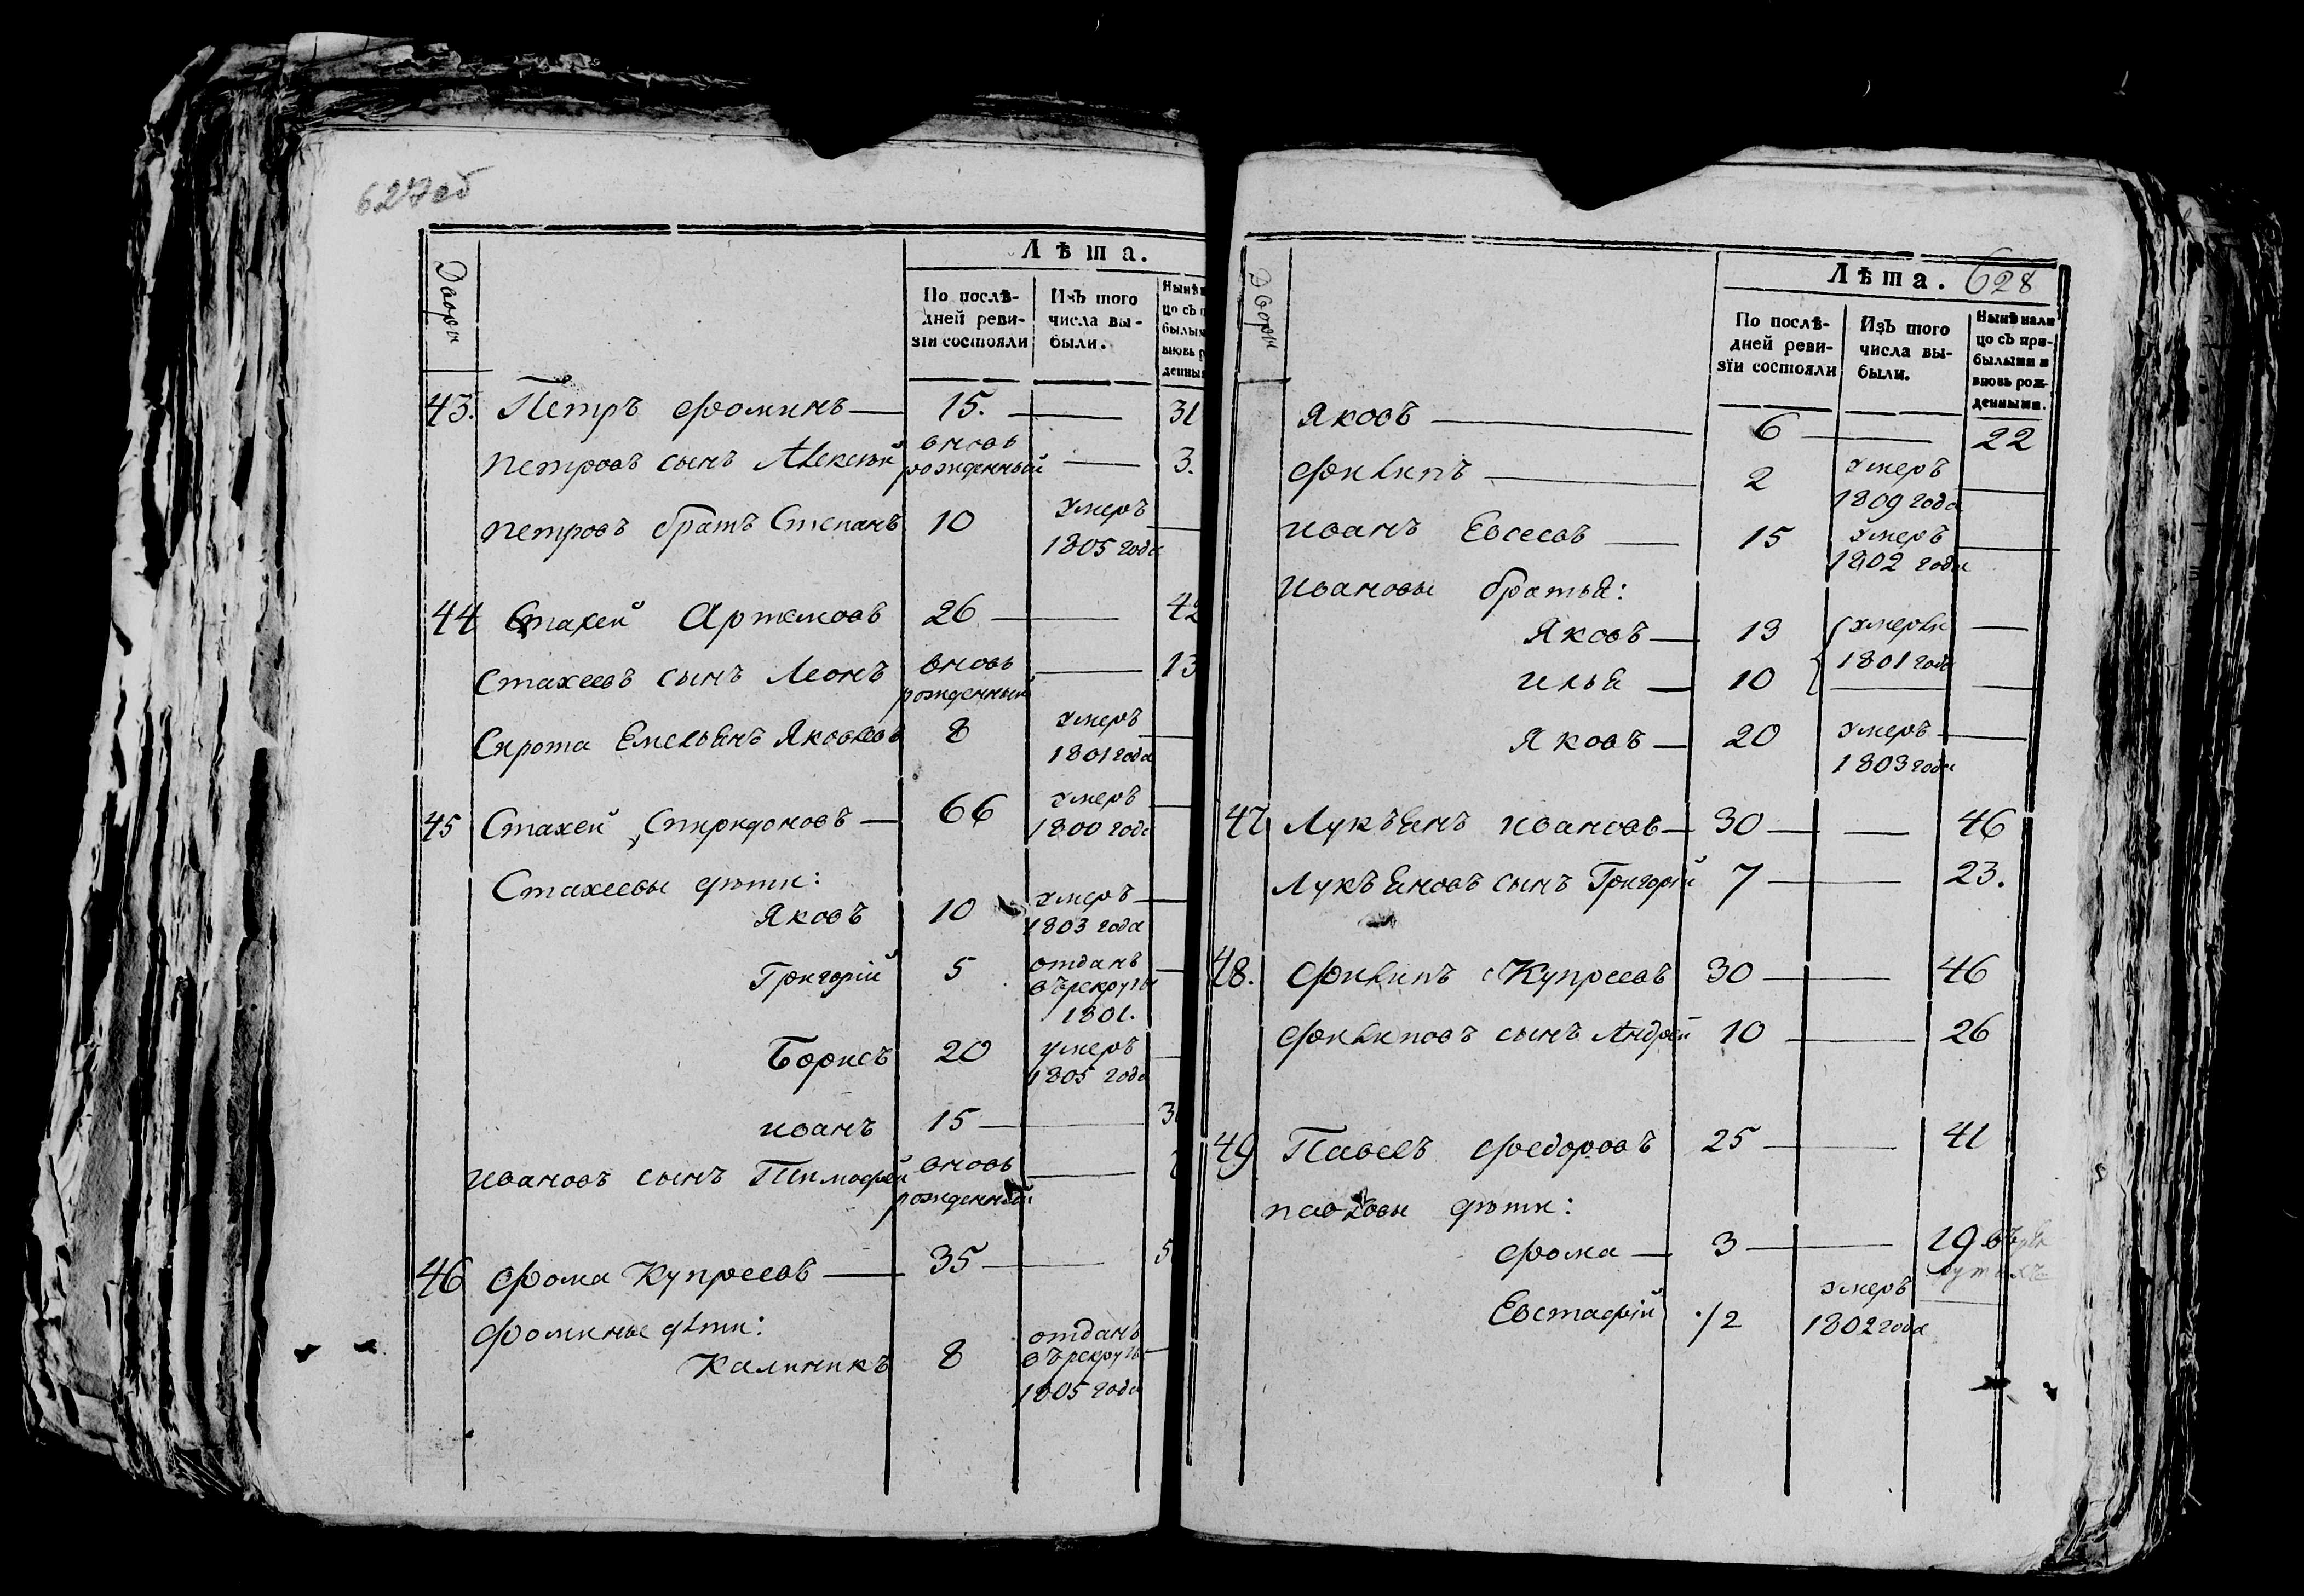 627об
Дворы
Лѣта.
По послѣ-
дней реви-
зіи состояли
Изъ того
числа вы-
были.
43. Петръ Фоминъ — 15. — 31
Петровъ сынъ Алексѣй вновь рожденный — 3.
Петровъ братъ Степанъ 10 умеръ
1805 года
44 Стахей Артемовъ 26 — 42
Стахеевъ сынъ Леонъ вновь рожденный — 13
Сирота Емельянъ Яковлевъ 8 умеръ
1801 года
45 Стахей Спиридоновъ — 66 умеръ
1800 года
Стахеевы дѣти:
Яковъ 10 умеръ
1803 года
Григорій 5 отданъ
въ рекруты
1801.
Борисъ 20 умеръ
1805 года
Иванъ 15 —
Ивановъ сынъ Тимофей вновь рожденный —
46 Фома Купреевъ — 35 — 5
Фомины дѣти:
Калиникъ 8 отданъ
въ рекруты
1805 года
628
Дворы
Лѣта.
По послѣ-
дней реви-
зіи состояли
Изъ того
числа вы-
были.
Нынѣ нали
цо съ при-
былыми и
вновь рож-
денными.
Яковъ — 6 — 22
Филипъ — 2 умеръ
1809 года —
Иванъ Евсеевъ — 15 умеръ
1802 года —
Ивановы братья:
Яковъ — 13 умерли —
Илья — 10 1801 года —
Яковъ — 20 умеръ —
1803 года
47 Лукъянъ Ивановъ — 30 — — 46
Лукъяновъ сынъ Григорій 7 — 23.
48. Филипъ Купреевъ 30 — 46
Филиповъ сынъ Андрей 10 — 26
49 Павелъ Федоровъ 25 — 41
Павловы дѣти:
Фома — 3 — 19
Евстафій ./2 умеръ
1802 года